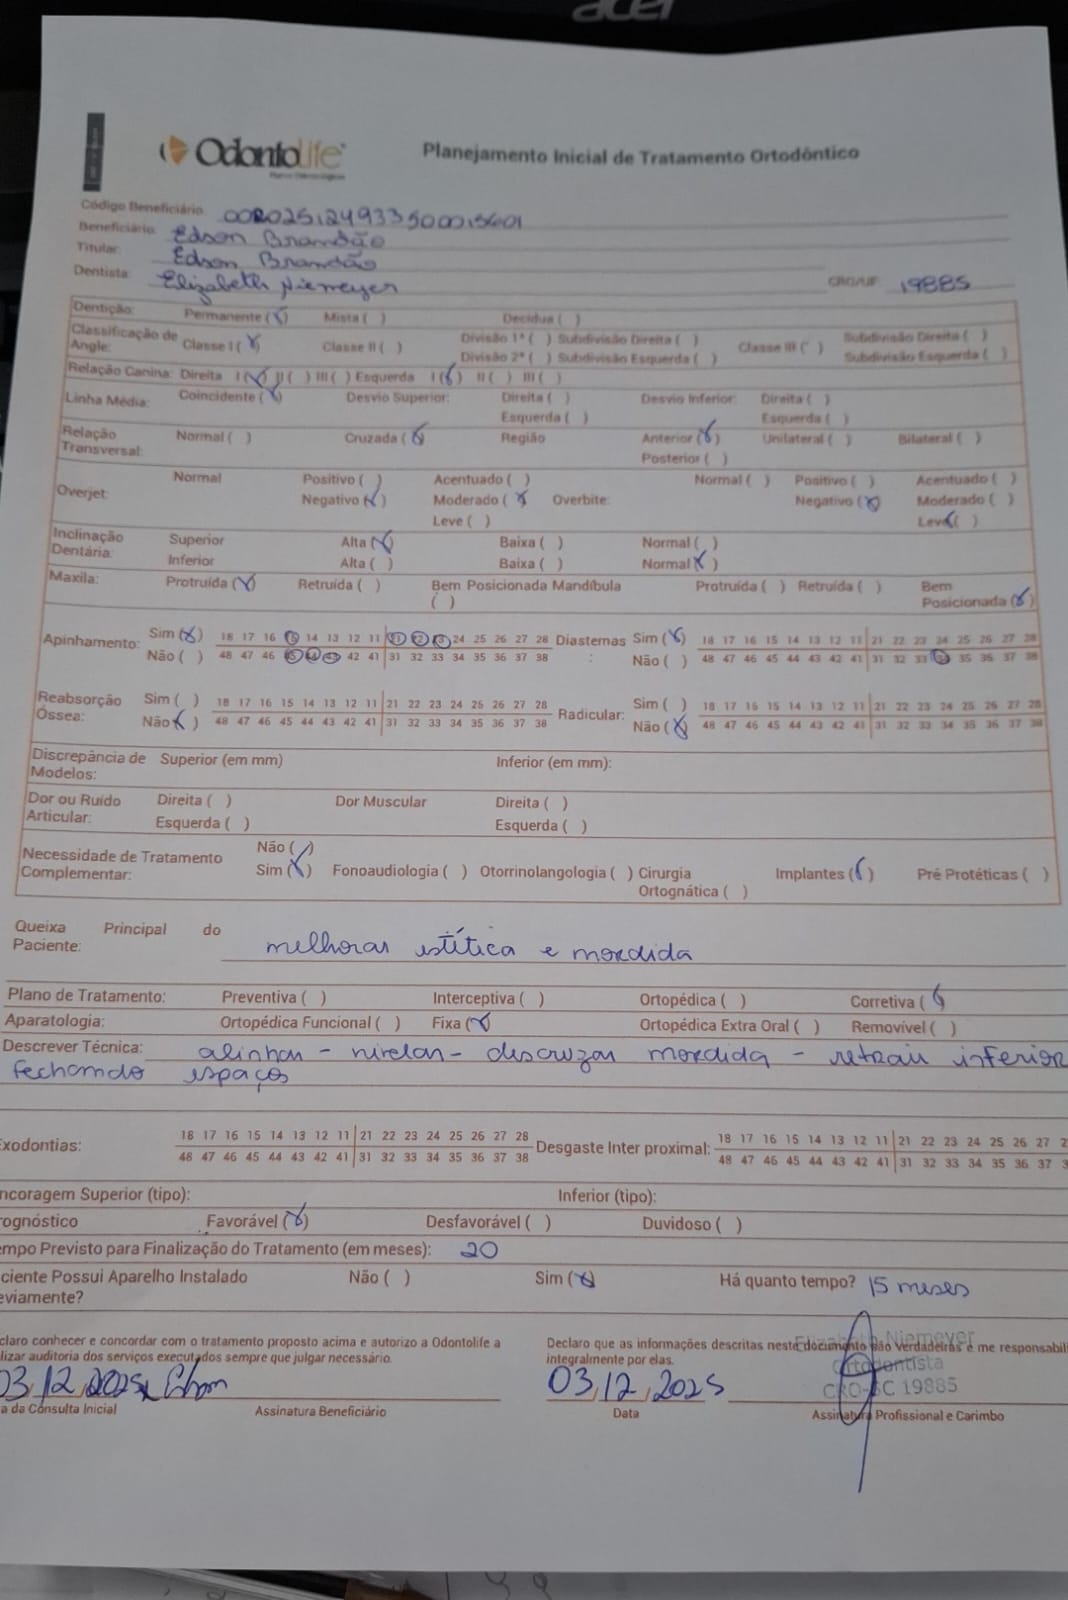 acer
OdontoLife Planejamento Inicial de Tratamento Ortodôntico
Planos Odontológicos
Código Beneficiário: 002025124933500015601
Beneficiário: Edson Brandão
Titular: Edson Brandão
Dentista: Elizabeth Niemeyer CRO/UF 19885
Dentição: Permanente (X) Mista ( ) Decídua ( )
Classificação de Angle: Classe I (X) Classe II ( ) Divisão 1ª ( ) Subdivisão Direita ( ) Classe III ( ) Subdivisão Direita ( )
Divisão 2ª ( ) Subdivisão Esquerda ( ) Subdivisão Esquerda ( )
Relação Canina: Direita I (X) II ( ) III ( ) Esquerda I (X) II ( ) III ( )
Linha Média: Coincidente (X) Desvio Superior: Direita ( ) Desvio Inferior: Direita ( )
Esquerda ( ) Esquerda ( )
Relação Transversal: Normal ( ) Cruzada (X) Região Anterior (X) Unilateral ( ) Bilateral ( )
Posterior ( )
Overjet: Normal Positivo ( ) Acentuado ( ) Normal ( ) Positivo ( ) Acentuado ( )
Negativo (X) Moderado (X) Overbite: Negativo (X) Moderado ( )
Leve ( ) Leve (X)
Inclinação Dentária: Superior Alta (X) Baixa ( ) Normal ( )
Inferior Alta ( ) Baixa ( ) Normal (X)
Maxila: Protruída (X) Retruída ( ) Bem Posicionada ( ) Mandíbula Protruída ( ) Retruída ( ) Bem Posicionada (X)
Apinhamento: Sim (X) 18 17 16 15 14 13 12 11 21 22 23 24 25 26 27 28 Diastemas: Sim (X) 18 17 16 15 14 13 12 11 21 22 23 24 25 26 27 28
Não ( ) 48 47 46 45 44 43 42 41 31 32 33 34 35 36 37 38 Não ( ) 48 47 46 45 44 43 42 41 31 32 33 34 35 36 37 38
Reabsorção Óssea: Sim ( ) 18 17 16 15 14 13 12 11 21 22 23 24 25 26 27 28 Radicular: Sim ( ) 18 17 16 15 14 13 12 11 21 22 23 24 25 26 27 28
Não (X) 48 47 46 45 44 43 42 41 31 32 33 34 35 36 37 38 Não (X) 48 47 46 45 44 43 42 41 31 32 33 34 35 36 37 38
Discrepância de Modelos: Superior (em mm) Inferior (em mm):
Dor ou Ruído Articular: Direita ( ) Dor Muscular Direita ( )
Esquerda ( ) Esquerda ( )
Necessidade de Tratamento Complementar: Não ( )
Sim (X) Fonoaudiologia ( ) Otorrinolangologia ( ) Cirurgia Ortognática ( ) Implantes (X) Pré Protéticas ( )
Queixa Principal do Paciente: melhorar estítica e mordida
Plano de Tratamento: Preventiva ( ) Interceptiva ( ) Ortopédica ( ) Corretiva (X)
Aparatologia: Ortopédica Funcional ( ) Fixa (X) Ortopédica Extra Oral ( ) Removível ( )
Descrever Técnica: alinhar - nivelar - descruzar mordida - retrair inferior
fechando espaços
xodontias: 18 17 16 15 14 13 12 11 21 22 23 24 25 26 27 28 Desgaste Inter proximal: 18 17 16 15 14 13 12 11 21 22 23 24 25 26 27 2
48 47 46 45 44 43 42 41 31 32 33 34 35 36 37 38 48 47 46 45 44 43 42 41 31 32 33 34 35 36 37 3
ncoragem Superior (tipo): Inferior (tipo):
rognóstico Favorável (X) Desfavorável ( ) Duvidoso ( )
empo Previsto para Finalização do Tratamento (em meses): 20
ciente Possui Aparelho Instalado eviamente? Não ( ) Sim (X) Há quanto tempo? 15 meses
claro conhecer e concordar com o tratamento proposto acima e autorizo a Odontolife a
lizar auditoria dos serviços executados sempre que julgar necessário.
Declaro que as informações descritas neste documento são verdadeiras e me responsabili
integralmente por elas.
Elizabeth Niemeyer
Ortodontista
CRO-SC 19885
03/12/2025 03/12/2025
a da Consulta Inicial Assinatura Beneficiário Data Assinatura Profissional e Carimbo